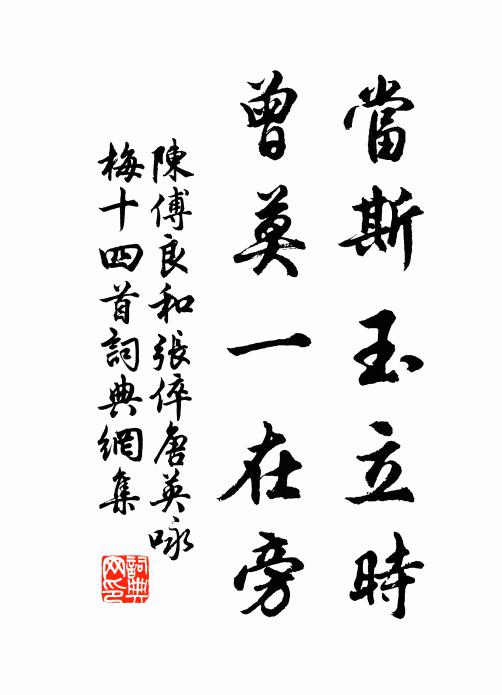 當斯玉立時
曾莫一在旁
陳傅良和張倅唐英咏
梅十四首詞典網集
詞典
网印